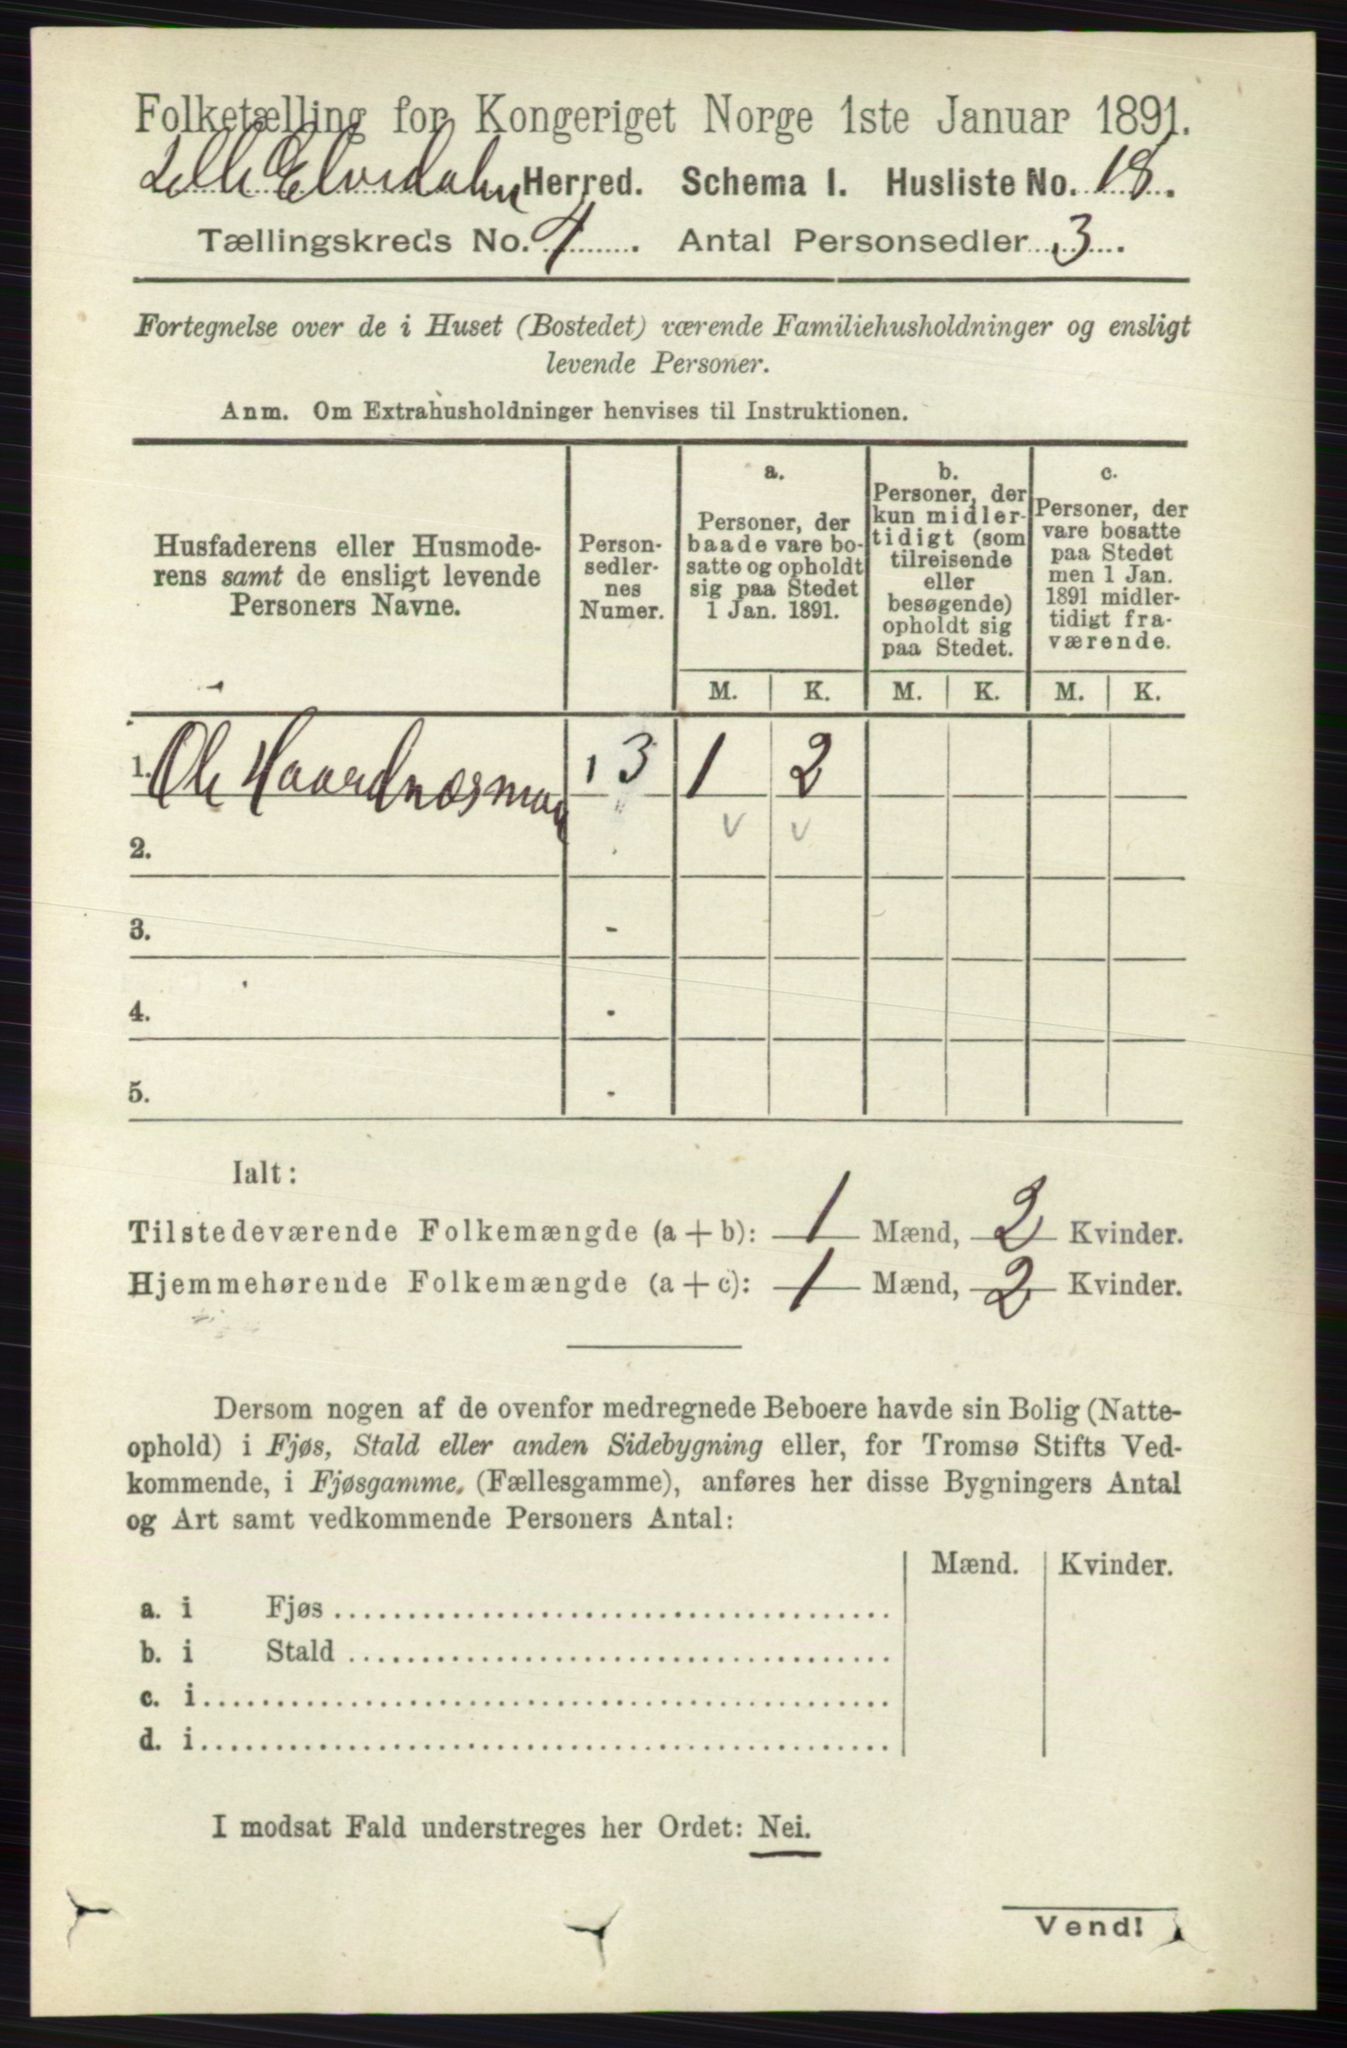 Folketælling for Kongeriget Norge 1ste Januar 1891.
Lille Elvedalen Herred. Schema I. Husliste No. 18.
Tællingskreds No. 4. Antal Personsedler 3.
Fortegnelse over de i Huset (Bostedet) værende Familiehusholdninger og ensligt
levende Personer.
Anm. Om Extrahusholdninger henvises til Instruktionen.
Husfaderens eller Husmode-
rens samt de ensligt levende
Personers Navne.
Person-
sedler-
nes
Numer.
a.
Personer, der
baade vare bo-
satte og opholdt
sig paa Stedet
1 Jan. 1891.
b.
Personer, der
kun midler-
tidigt (som
tilreisende
eller
besøgende)
opholdt sig
paa Stedet.
c.
Personer, der
vare bosatte
paa Stedet
men 1 Jan.
1891 midler-
tidigt fra-
værende.
M. K. M. K. M. K.
1. Ole 1 3 1 2
2.
3. -
4. -
5. -
Ialt:
Tilstedeværende Folkemængde (a + b): 1 Mænd, 2 Kvinder.
Hjemmehørende Folkemængde (a + c): 1 Mænd, 2 Kvinder.
Dersom nogen af de ovenfor medregnede Beboere havde sin Bolig (Natte-
ophold) i Fjøs, Stald eller anden Sidebygning eller, for Tromsø Stifts Ved-
kommende, i Fjøsgamme, (Fællesgamme), anføres her disse Bygningers Antal
og Art samt vedkommende Personers Antal:
Mænd. Kvinder.
a. i Fjøs
b. i Stald
c. i
d. i
I modsat Fald understreges her Ordet: Nei.
Vend!